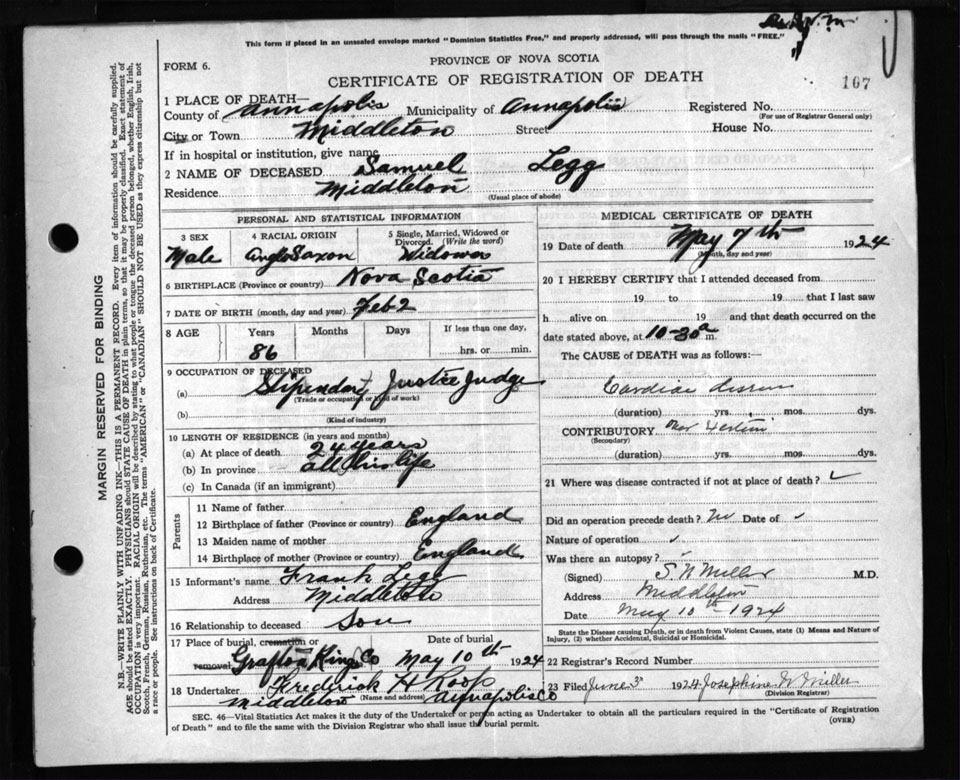 This form if placed in an unsealed envelope marked "Dominion Statistics Free," and properly addressed, will pass through the mails "FREE."
PROVINCE OF NOVA SCOTIA
FORM 6.
CERTIFICATE OF REGISTRATION OF DEATH
167
1 PLACE OF DEATH—
County of Annapolis Municipality of Annapolis Registered No.
(For use of Registrar General only)
City or Town Middleton Street House No.
If in hospital or institution, give name
2 NAME OF DECEASED Samuel Legg
Residence Middleton
(Usual place of abode)
PERSONAL AND STATISTICAL INFORMATION
3 SEX 4 RACIAL ORIGIN 5 Single, Married, Widowed or Divorced. (Write the word)
Male Anglo Saxon Widower
6 BIRTHPLACE (Province or country) Nova Scotia
7 DATE OF BIRTH (month, day and year) Feb 2
8 AGE Years Months Days If less than one day,
86 hrs. or min.
9 OCCUPATION OF DECEASED
(a) Stipendary Justice Judge
(Trade or occupation or kind of work)
(b)
(Kind of industry)
10 LENGTH OF RESIDENCE (in years and months)
(a) At place of death 24 years
(b) In province all his life
(c) In Canada (if an immigrant)
Parents
11 Name of father
12 Birthplace of father (Province or country) England
13 Maiden name of mother
14 Birthplace of mother (Province or country) England
15 Informant's name Frank Legg
Address Middleton
16 Relationship to deceased Son
17 Place of burial, cremation or removal, Grafton Kings Co Date of burial May 10th 1924
18 Undertaker Frederick H Roop
(Name and address)
Middleton Annapolis Co
MEDICAL CERTIFICATE OF DEATH
19 Date of death May 7th 1924
(Month, day and year)
20 I HEREBY CERTIFY that I attended deceased from
19 to 19 that I last saw
h alive on 19 and that death occurred on the
date stated above, at 10-30 a m.
The CAUSE of DEATH was as follows:
Cardiac
(duration) yrs. mos. dys.
CONTRIBUTORY
(Secondary)
(duration) yrs. mos. dys.
21 Where was disease contracted if not at place of death? ✓
Did an operation precede death? No Date of ✓
Nature of operation ✓
Was there an autopsy? ✓
(Signed) S N Miller M.D.
Address Middleton
Date May 10th 1924
State the Disease causing Death, or in death from Violent Causes, state (1) Means and Nature of Injury, (2) whether Accidental, Suicidal or Homicidal.
22 Registrar's Record Number
23 Filed June 3rd 1924 Josephine N Miller
(Division Registrar)
SEC. 46—Vital Statistics Act makes it the duty of the Undertaker or person acting as Undertaker to obtain all the particulars required in the "Certificate of Registration
of Death" and to file the same with the Division Registrar who shall issue the burial permit.
(OVER)
MARGIN RESERVED FOR BINDING
N.B.—WRITE PLAINLY WITH UNFADING INK—THIS IS A PERMANENT RECORD. Every item of information should be carefully supplied.
AGE should be stated EXACTLY. PHYSICIANS should STATE CAUSE OF DEATH in plain terms, so that it may be properly classified. Exact statement of
OCCUPATION is very important. RACIAL ORIGIN will be described by stating to what people or tongue the deceased person belonged, whether English, Irish,
Scotch, French, German, Russian, Ruthenian, etc. The terms "AMERICAN" or "CANADIAN" SHOULD NOT BE USED as they express citizenship but not
a race or people. See instructions on back of Certificate.